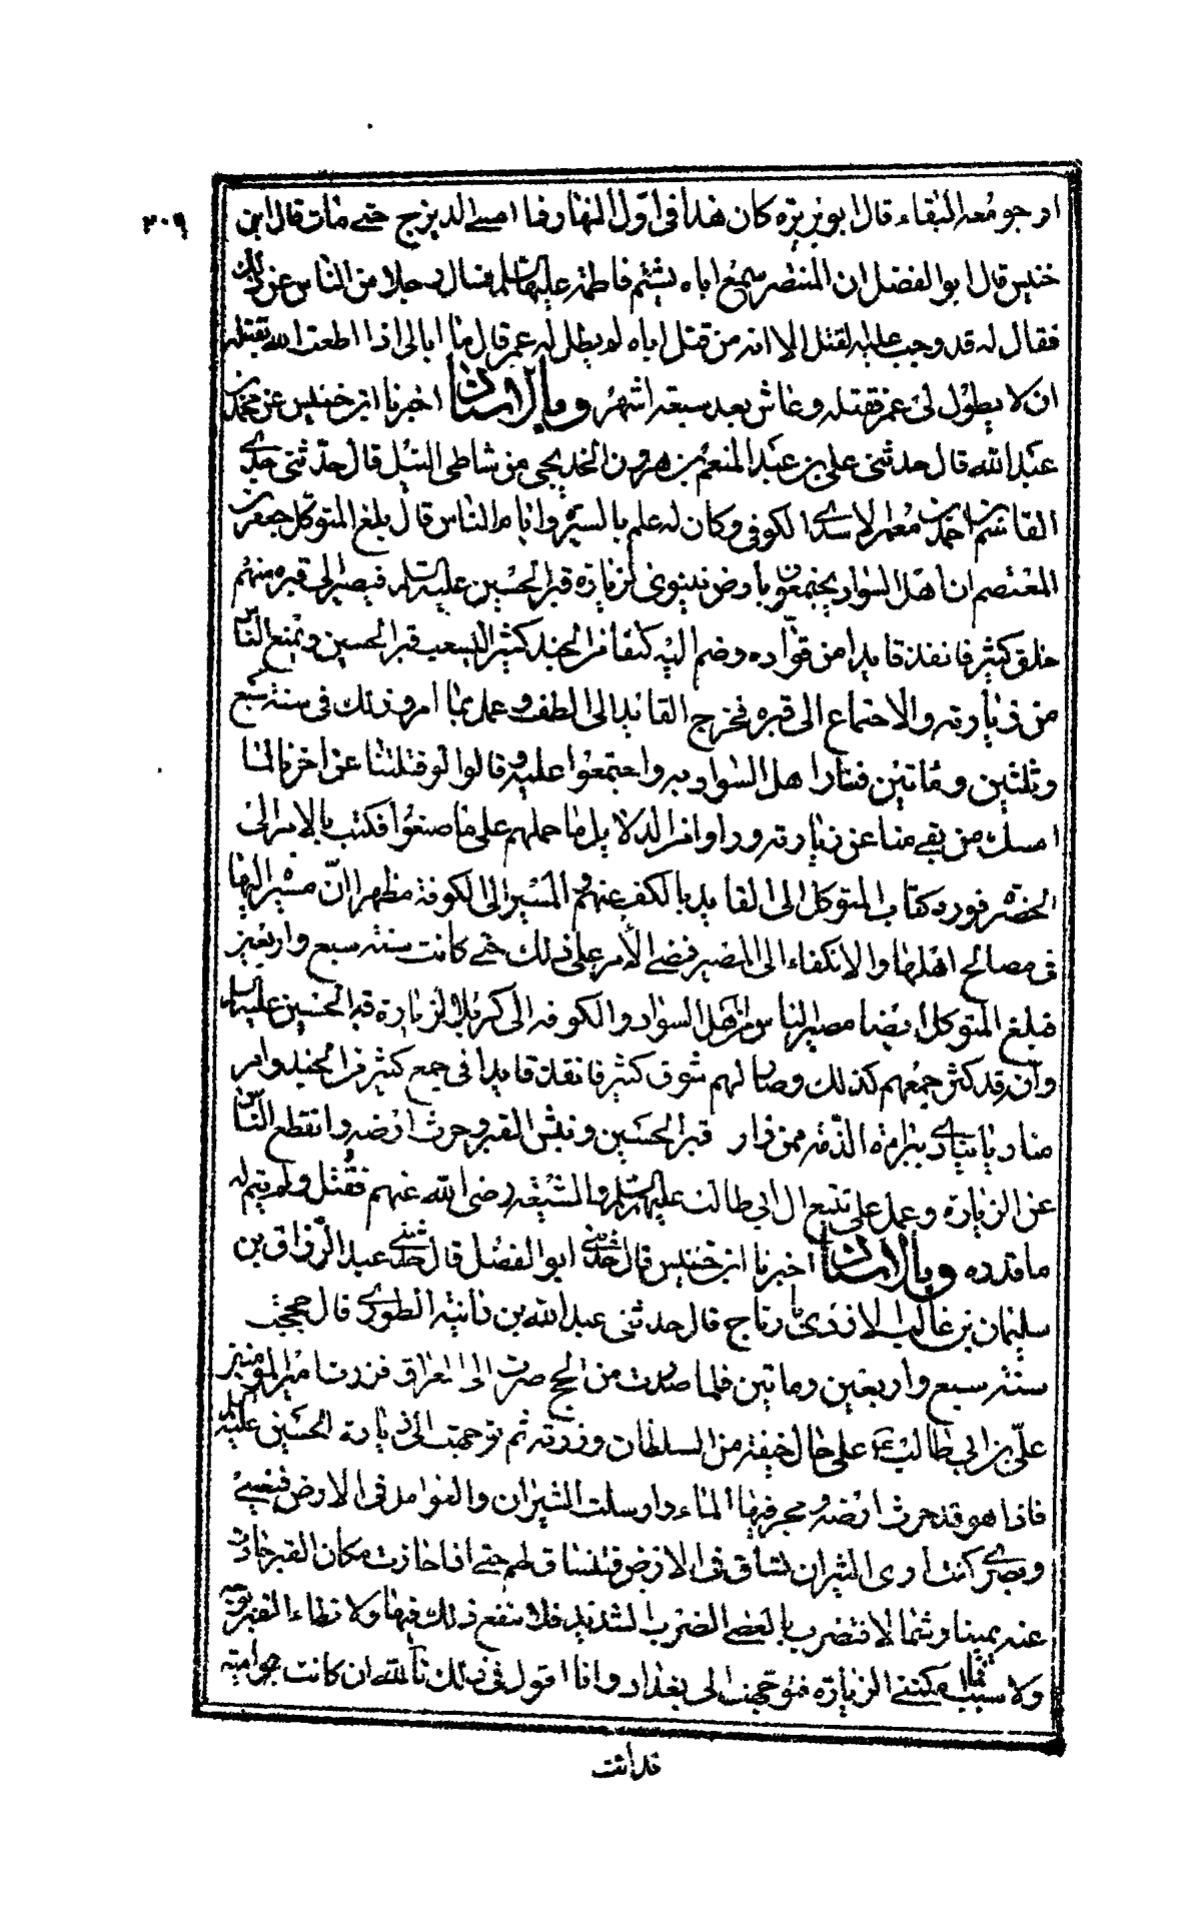 ٢٠٩
ارجو معه البقاء قال ابو بريزه كان هذا فى اول النهار فما امسى الديزج حتى مات قال ابن
خنيس قال ابو الفضل ان المنتصر سمع اباه يشتم فاطمة عليها السلم فسال رجلا من الناس عن ذلك
فقال له قد وجب عليه القتل الا انه من قتل اباه لم يطل له عمر قال ما ابالى اذا اطعت الله بقتله
ان لا يطول لى عمر فقتله وعاش بعد سبعة اشهر وبالاسناد اخبرنا ابن خنيس عن محمد بن
عبد الله قال حدثنى على بن عبد المنعم بن هرون الخديجى من شاطى النيل قال حدثنى جدى
القاسم بن احمد بن معمر الاسدى الكوفى وكان له علم بالسيرة وايام الناس قال بلغ المتوكل جعفر بن
المعتصم ان اهل السواد يجتمعون بارض نينوى لزيارة قبر الحسين عليه السلم فيصير الى قبره منهم
خلق كثير فانفذ قايدا من قواده وضم اليه كنفا من الجند كثيرا ليشعب قبر الحسين ويمنع الناس
من زيارته والاجتماع الى قبره فخرج القائد الى الطف وعمل بما امر وذلك فى سنة سبع
وثلثين ومائتين فثار اهل السواد به واجتمعوا عليه وقالوا لو قتلتنا عن اخرنا لما
امسك من بقى منا عن زيارته وراوا من الدلايل ما حملهم على ما صنعوا فكتب بالامر الى
الحضرة فورد كتاب المتوكل الى القايد بالكف عنهم والمسير الى الكوفة مظهرا ان مسيره اليها
فى مصالح اهلها والانكفاء الى المصير فمضى الامر على ذلك حتى كانت سنة سبع واربعين
فبلغ المتوكل ايضا مصير الناس من اهل السواد والكوفه الى كربلا لزيارة قبر الحسين عليه السلم
وانه قد كثر جمعهم كذلك وصار لهم سوق كثير فانفذ قايدا فى جمع كثير من الجند وامر
مناديا ينادى ببراءة الذمة ممن زار قبر الحسين ونبش القبر وحرث ارضه وانقطع الناس
عن الزيارة وعمل على تتبع ال ابى طالب عليهم السلم والشيعة رضى الله عنهم فقتل ولم يتم له
ما قدره وبالاسناد اخبرنا ابن خنيس قال حدثنى ابو الفضل قال حدثنى عبد الرزاق بن
سليمان بن غالب الازدى بارتاج قال حدثنى عبد الله بن دانية الطورى قال حججت
سنة سبع واربعين وماتين فلما صدرت من الحج صرت الى العراق فزرت امير المؤمنين
على بن ابى طالب ع على حال خيفة من السلطان وزرته ثم توجهت الى زيارة الحسين عليه السلم
فاذا هو قد حرث ارضه ومجر فيها الماء وارسلت الثيران والعوامل فى الارض فبعينى
وبصرى كنت ارى الثيران تساق فى الارض فتنساق لهم حتى اذا حازت مكان القبر حادت
عنه يمينا وشمالا فتضرب بالعصى الضرب الشديد فلا ينفع ذلك فيها ولا تطاء القبر بوجه
ولا سبب فما امكننى الزيارة فتوجهت الى بغداد وانا اقول فى ذلك تالله ان كانت جوامية
قد اتت